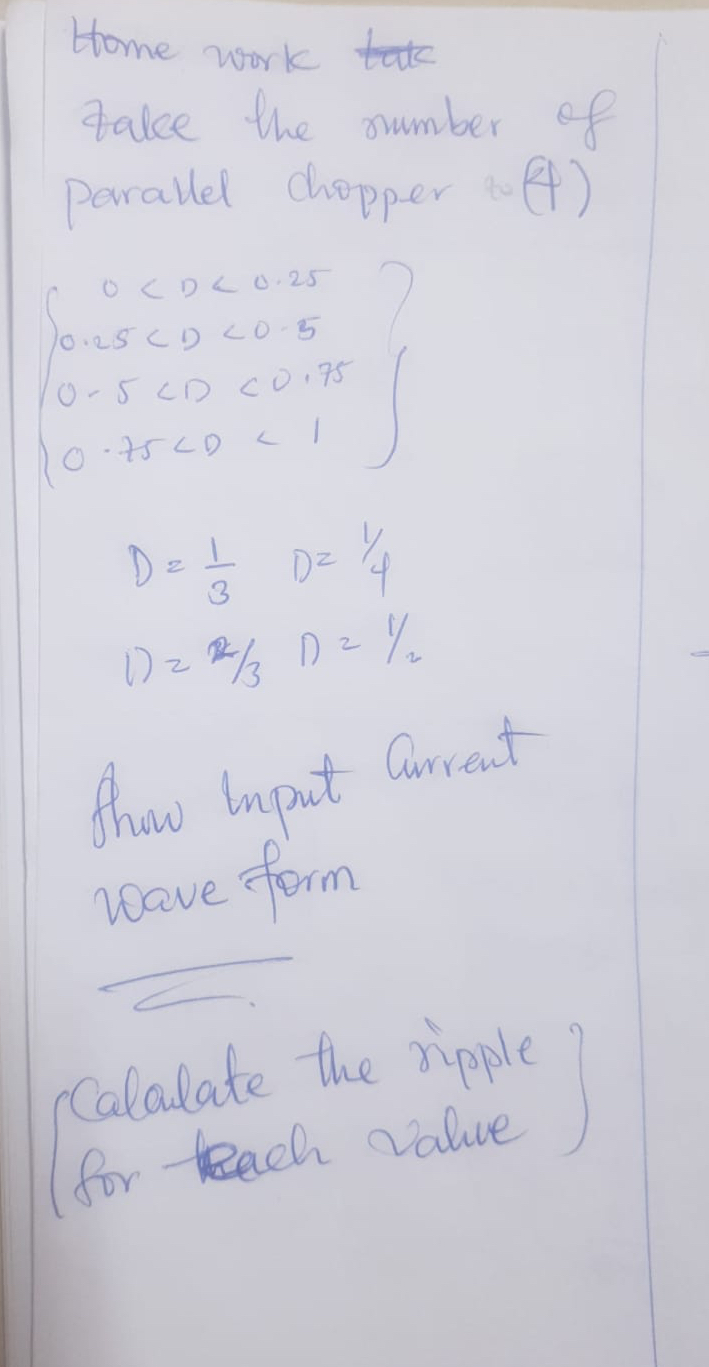 Home work
take the number of
parallel chopper (4)
0 < D < 0.25
0.25 < D < 0.5
0.5 < D < 0.75
0.75 < D < 1
D = 1/3 D = 1/4
D = 2/3 D = 1/2
Show Input Current
wave form
Calculate the ripple
for each value